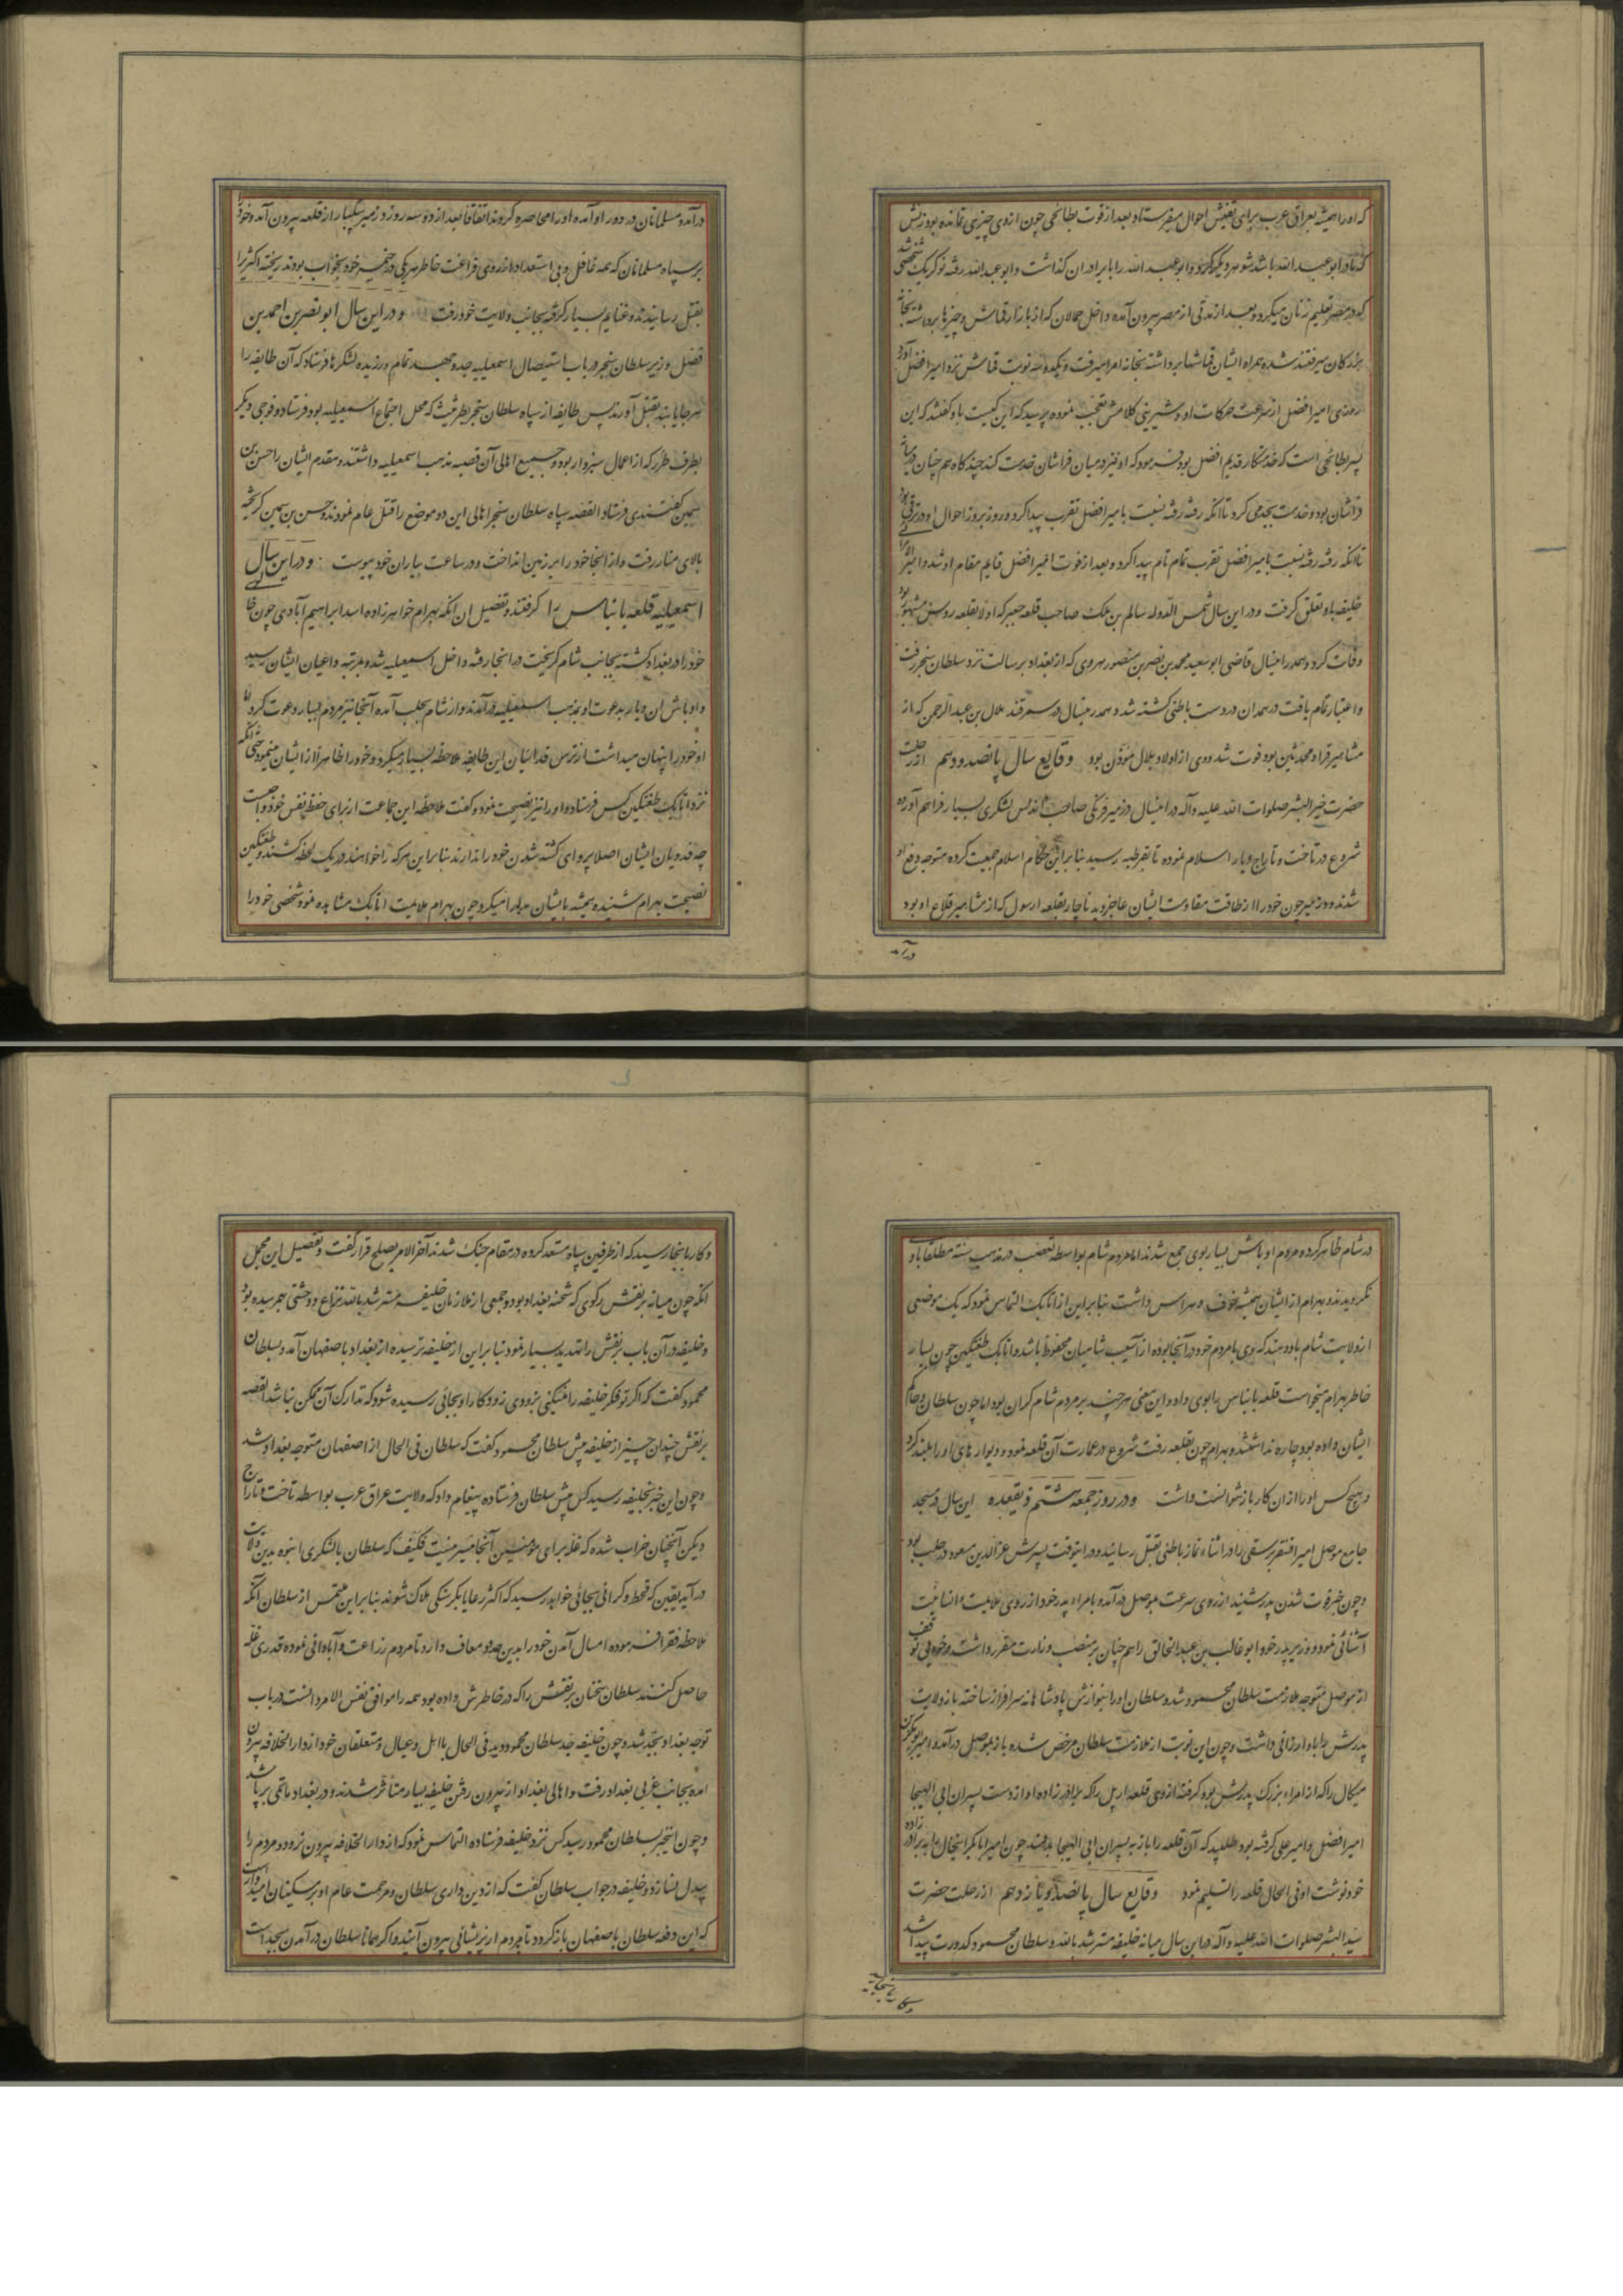 که او را همیشه بعراق عرب برای تفتیش احوال میفرستاد و بعد از فوت بطائحی چون از وی چیزی نمانده بود زنش
که مادر ابو عبد الله باشد شوهر دیگر کرد و ابو عبد الله را با برادران گذاشت و ابو عبد الله رفته نوکر یک شخصی شد
که در مصر تعلیم زنان میکرد و بعد از مدتی از مصر بیرون آمده داخل حمالان که از بازار قماش و چیزها برداشته بخانه
بزرگان میرفتند شده همراه ایشان قماشها برداشته بخانه امرا میرفت و یکدو سه نوبت قماش نزد امیر افضل آورد
روزی امیر افضل از سرعت حرکات او و شیرینی کلامش تعجب نموده پرسید که این کیست باو گفتند که این
پسر بطائحی است که خدمتکار قدیم افضل بود فرمود که او نیز در میان فراشان خدمت کند چند گاه هم چنان در میان
فراشان بود و خدمت بجد می کرد تا آنکه رفته رفته نسبت بامیر افضل تقرب پیدا کرد و روز بروز احوال او در ترقی بود
تا آنکه رفته رفته نسبت بامیر افضل تقرب تمام تام پیدا کرد و بعد از فوت امیر افضل قایم مقام او شد و امیر الامرائی
خلیفه باو تعلق گرفت و در این سال شمس الدوله سالم بن ملک صاحب قلعه جعبر که اولا بقلعه دوسر مشهور بود
وفات کرد و همدر اینسال قاضی ابو سعید محمد بن نصر بن منصور هروی که از بغداد برسالت نزد سلطان سنجر رفت
و اعتبار تمام یافت در همدان در دست باطنی کشته شد و همدر ینسال در سمرقند بلال بن عبد الرحمن که از
مشاهیر قراء و محدثین بود فوت شد و وی از اولاد بلال مؤذن بود وقایع سال پانصد و دهم از رحلت
حضرت خیر البشر صلوات الله علیه و آله در اینسال رذمیر فرنگی صاحب اندلس لشکری بسیار فراهم آورده
شروع در تاخت و تاراج دیار اسلام نموده تا بقرطبه رسید بنا براین حکام اسلام جمعیت کرده متوجه دفع او
شدند و رذمیر چون خود را از طاقت مقاومت ایشان عاجز دید ناچار بقلعه ارسول که از مشاهیر قلاع او بود
در آمد
در آمد و مسلمانان در دور او آمده او را محاصره کردند اتفاقا بعد از دو سه روز رذمیر یکبار از قلعه بیرون آمد و خود را
بر سپاه مسلمانان که همه غافل و بی استعداد از روی فراغت خاطر هر یکی در خیمه خود بخواب بودند ریخته اکثر را
بقتل رسانیدند و غنایم بسیار گرفته بجانب ولایت خود رفت و در این سال ابو نصر بن احمد بن
فضل وزیر سلطان سنجر در باب استیصال اسمعیلیه جد و جهد تمام ورزیده لشکرها فرستاد که آن طایفه را
هر جا یابند بقتل آورند پس طایفه از سپاه سلطان سنجر بطریثیث که محل اجتماع اسمعیلیه بود فرستاد و فوجی دیگر
بطرف طرز که از اعمال سبزوار بود و جمیع اهالی آن قصبه مذهب اسمعیلیه داشتند و مقدم ایشان را حسن بن
سمین گفتندی فرستاد القصه سپاه سلطان سنجر اهالی این دو موضع را قتل عام نمودند و حسن بن سمین گریخته
بالای منار رفت و از آنجا خود را بر زمین انداخت و در ساعت بیاران خود پیوست و در این سال
اسمعیلیه قلعه بانیاس را گرفتند و تفصیل ان انکه بهرام خواهرزاده اسد ابراهیم آبادی چون خا
خود را در بغداد کشته بجانب شام گریخت در انجا رفته داخل اسمعیلیه شد و بمرتبه داعیان ایشان رسید
و اوباش ان دیار بدعوت او بمذهب اسمعیلیه در آمدند و از شام بحلب آمده آنجا نیز مردم بسیار دعوت کرد اما
او خود را پنهان میداشت از ترس فدائیان این طایفه ملاحظه بسیار میکرد و خود را ظاهرا از ایشان مینمود حتی انکه
نزد اتابک طغتکین کس فرستاد و او را نیز نصیحت نمود و گفت ملاحظه این جماعت از برای حفظ نفس خود واجبست
چه فدویان ایشان اصلا پروای کشته شدن خود را ندارند بنا براین هر که را خواهند در یک لحظه کشند و طغتکین
نصیحت بهرام شنیده همیشه با ایشان مدارا میکرد چون بهرام ملایمت اتابک مشاهده نمود شخصی خود را
در شام ظاهر کرده و مردم اوباش بسیار بوی جمع شدند اما مردم شام بواسطه تعصب در مذهب سنت مطلقا باو
نگرویدند و بهرام از ایشان همیشه خوف و هراس داشت بنا براین از اتابک التماس نمود که یک موضعی
از ولایت شام باو دهند که وی با مردم خود در آنجا بوده از آسیب شامیان محفوظ باشد و اتابک طغتکین چون بسیار
خاطر بهرام میخواست قلعه بانیاس را بوی داد و این معنی هر چند بر مردم شام گران بود اما چون سلطان و حاکم
ایشان داده بود چاره نداشتند و بهرام چون بقلعه رفت شروع در عمارت آن قلعه نمود و دیوارهای او را بلند کرد
و هیچ کس او را از ان کار باز نتوانست داشت و در روز جمعه هشتم ذیقعده این سال در مسجد
جامع موصل امیر اقسنقر برسقی را در اثناء نماز باطنی بقتل رسانید و در اینوقت پسرش عز الدین مسعود در حلب بود
و چون خبر فوت شدن پدر شنید از روی سرعت بموصل در آمد و با امراء پدر خود از روی ملایمت و انسانیت
آشنائی نمود و وزیر پدر خود ابو غالب بن عبد الخالق را هم چنان بر منصب وزارت مقرر داشت و خود بی توقف
از موصل متوجه ملازمت سلطان محمود شد و سلطان او را بنوازش پادشاهانه سرافراز ساخته باز ولایت
پدرش را باو ارزانی داشت و چون این نوبت از ملازمت سلطان مرخص شده باز بموصل در آمد و امیر ابو بکر بن
میکال را که از امراء بزرگ پدرش بود گرفته از وی قلعه اربل را که برادرزاده او از دست پسران ابی الهیجا
امیر افضل و امیر علی گرفته بود طلبید که آن قلعه را باز به پسران ابی الهیجا بدهند چون امیر ابا بکر اینحال را به برادرزاده
خود نوشت او فی الحال قلعه را تسلیم نمود وقایع سال پانصد و یازدهم از رحلت حضرت
سید البشر صلوات الله علیه و آله در این سال میانه خلیفه مسترشد بالله و سلطان محمود کدورت پیدا شد
و کار بانجا رسید
و کار بانجا رسید که از طرفین سپاه مستعد کرده در مقام جنگ شدند آخر الامر بصلح قرار گفت و تفصیل این مجمل
انکه چون میانه برنقش زکوی که شحنه بغداد بود و جمعی از ملازمان خلیفه مسترشد بالله نزاع و وحشتی بهم رسیده بود
و خلیفه در آن باب برنقش را تهدید بسیار نمود بنا براین از خلیفه ترسیده از بغداد باصفهان آمد و بسلطان
محمود گفت که اگر تو فکر خلیفه را نمیکنی بزودی زود کار او بجائی رسیده شود که تدارک آن ممکن نباشد القصه
برنقش چندان چیز از خلیفه پیش سلطان محمود گفت که سلطان فی الحال از اصفهان متوجه بغداد شد
و چون این خبر بخلیفه رسید کس پیش سلطان فرستاده پیغام داد که ولایت عراق عرب بواسطه تاخت و تاراج
دبیس آنچنان خراب شده که غله برای مؤمنین آنجا میسر نیست فکیف که سلطان با لشکری انبوه بدین ولایت
در آید یقین که قحط و گرانی بجائی خواهد رسید که اکثر رعایا بگرسنگی هلاک شوند بنا براین ملتمس از سلطان آنکه
ملاحظه فقرا فرموده امسال آمدن خود را بدین حدود معاف دارد تا مردم زراعت و آبادانی نموده قدری غله
حاصل کنند سلطان سخنان برنقش را که در خاطرش داده بود همه را موافق نفس الامر دانست در باب
توجه بغداد بجد شد و چون خلیفه جد سلطان محمود دید فی الحال با اهل و عیال و متعلقان خود از دار الخلافه بیرون
امده بجانب غربی بغداد رفت و اهالی بغداد از بیرون رفتن خلیفه بسیار متأثر شدند و در بغداد ماتمی بر پا شد
و چون اینخبر بسلطان محمود رسید کس نزد خلیفه فرستاده التماس نمود که از دار الخلافه بیرون نرود و مردم را
بیدل نسازد و خلیفه در جواب سلطان گفت که از دین داری سلطان و مرحمت عام او بر مسکینان امیدوار است
که این دفعه سلطان باصفهان باز گردد تا مردم از پریشانی بیرون آیند و اگر همانا سلطان در آمدن بجد است